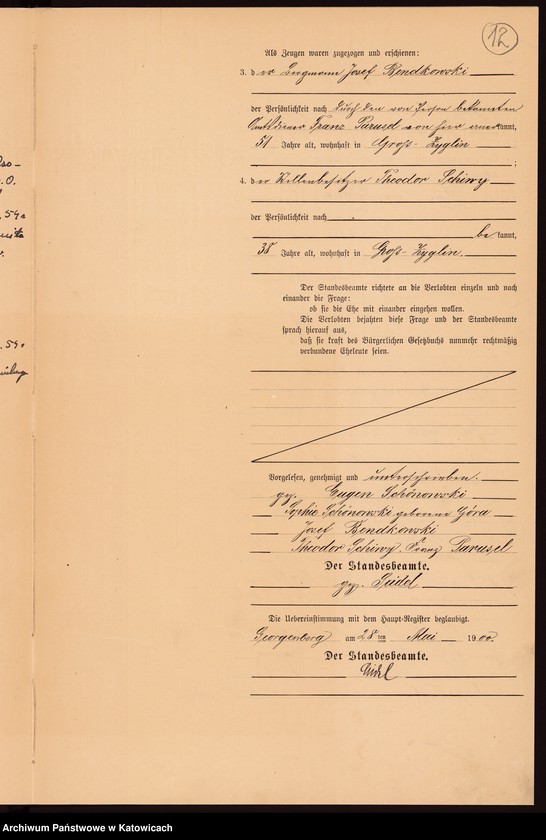 12
Als Zeugen waren zugezogen und erschienen:
3. der Bergmann Josef Bendkowski
der Persönlichkeit nach durch den von Person bekannten
Amtsdiener Franz Parusel von hier anerkannt,
51 Jahre alt, wohnhaft in Groß-Zyglin
;
4. der Stellenbesitzer Theodor Schiwy
der Persönlichkeit nach
bekannt,
38 Jahre alt, wohnhaft in Groß-Zyglin.
Der Standesbeamte richtete an die Verlobten einzeln und nach
einander die Frage:
ob sie die Ehe mit einander eingehen wollen.
Die Verlobten bejahten diese Frage und der Standesbeamte
sprach hierauf aus,
daß sie kraft des Bürgerlichen Gesetzbuchs nunmehr rechtmäßig
verbundene Eheleute seien.
Vorgelesen, genehmigt und unterschrieben.
gez. Eugen Schönowski
Sophie Schönowski geborene Góra
Josef Bendkowski
Theodor Schiwy. Franz Parusel
Der Standesbeamte.
gez. Seidel
Die Uebereinstimmung mit dem Haupt-Register beglaubigt.
Georgenberg am 28ten Mai 1900.
Der Standesbeamte.
Seidel
Archiwum Państwowe w Katowicach